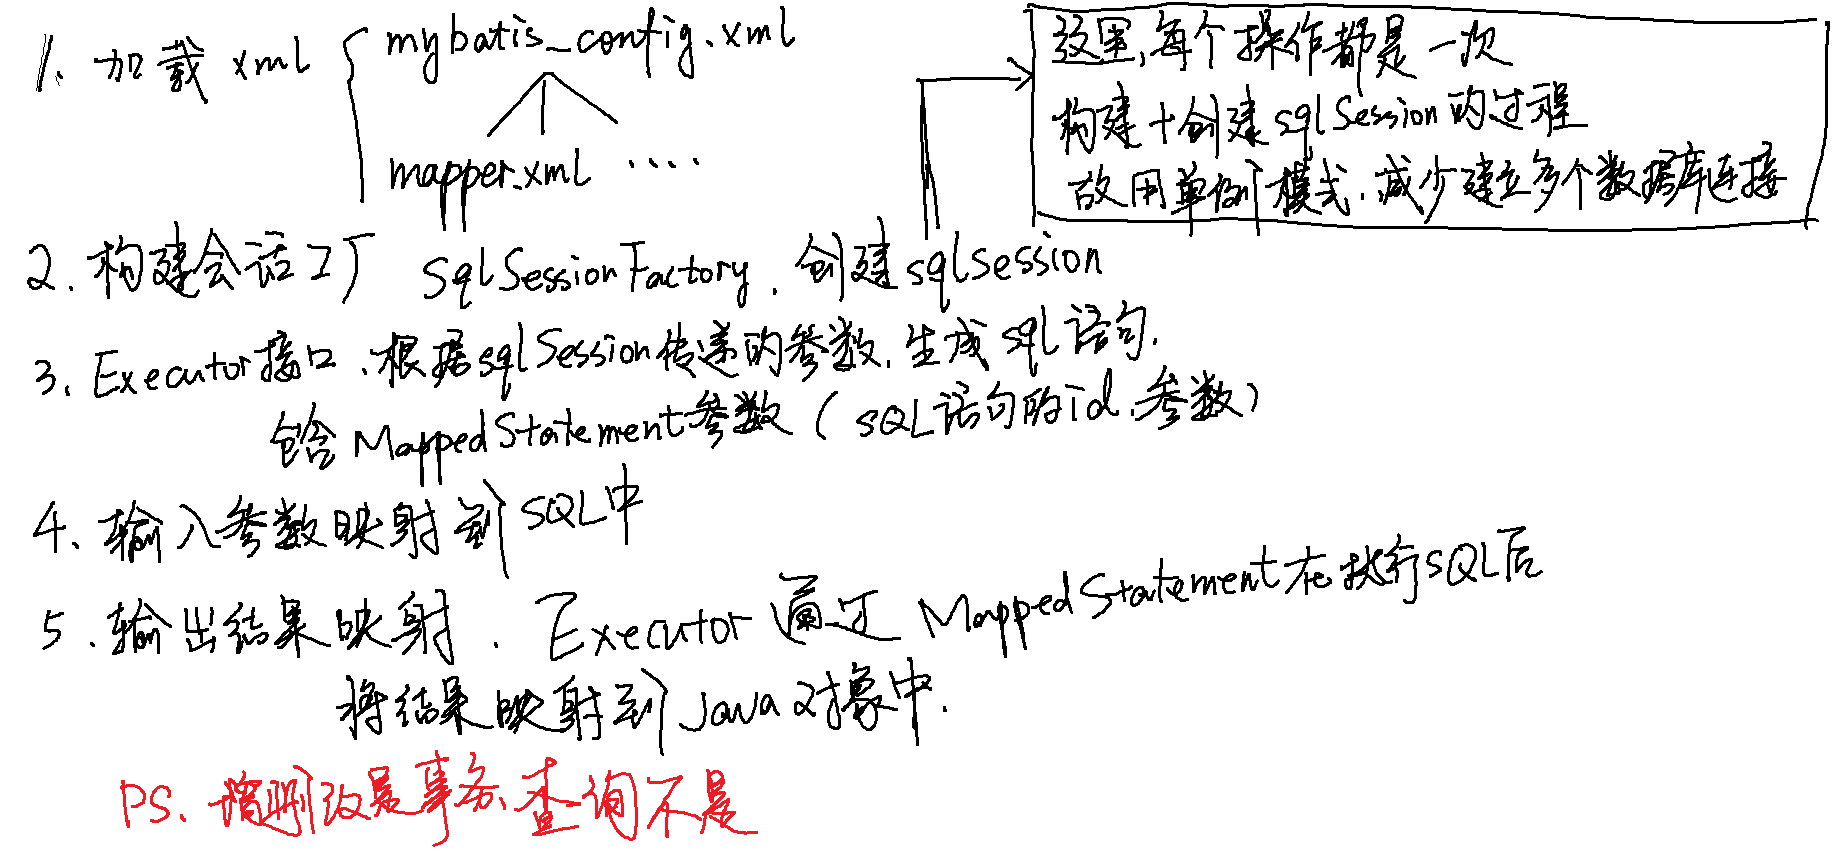 1、加载 xml
mybatis_config.xml
mapper.xml ····
这里,每个操作都是一次
构建+创建sqlSession的过程
故用单例模式,减少建立多个数据库连接
2、构建会话工厂 SqlSessionFactory、创建sqlsession
3、Executor接口、根据sqlSession传递的参数,生成sql语句,
包含MappedStatement参数(SQL语句的id、参数)
4、输入参数映射到SQL中
5、输出结果映射、Executor通过MappedStatement在执行SQL后
将结果映射到Java对象中.
PS、增删改是事务、查询不是